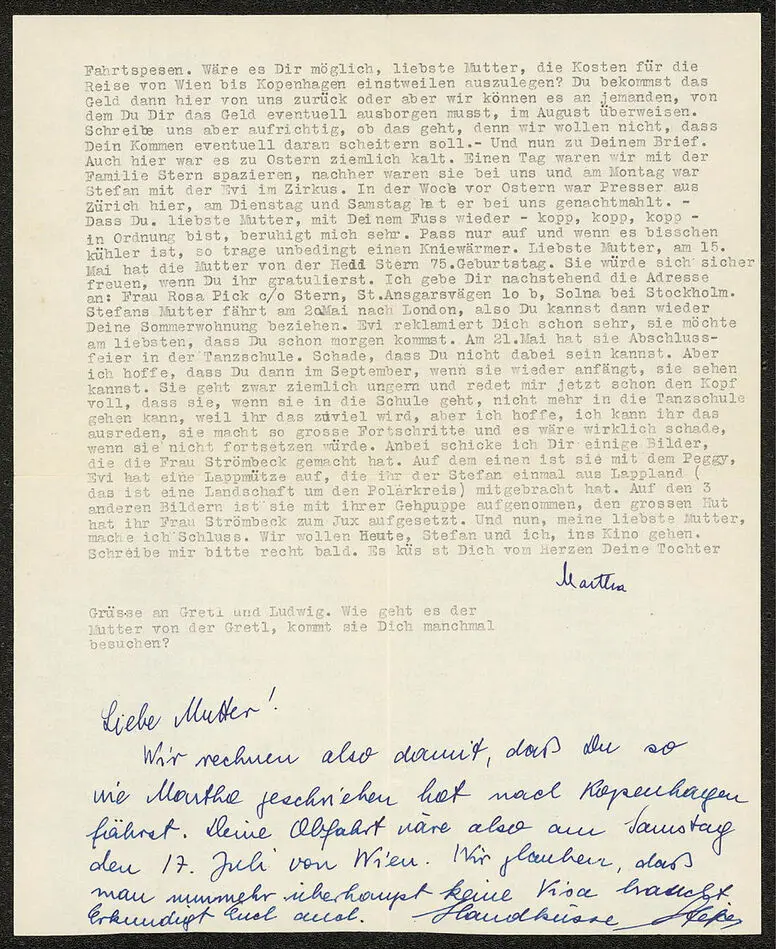 Fahrtspesen. Wäre es Dir möglich, liebste Mutter, die Kosten für die
Reise von Wien bis Kopenhagen einstweilen auszulegen? Du bekommst das
Geld dann hier von uns zurück oder aber wir können es an jemanden, von
dem Du Dir das Geld eventuell ausborgen musst, im August überweisen.
Schreibe uns aber aufrichtig, ob das geht, denn wir wollen nicht, dass
Dein Kommen eventuell daran scheitern soll.- Und nun zu Deinem Brief.
Auch hier war es zu Ostern ziemlich kalt. Einen Tag waren wir mit der
Familie Stern spazieren, nachher waren sie bei uns und am Montag war
Stefan mit der Evi im Zirkus. In der Woche vor Ostern war Presser aus
Zürich hier, am Dienstag und Samstag hat er bei uns genachtmahlt. -
Dass Du. liebste Mutter, mit Deinem Fuss wieder - kopp, kopp, kopp -
in Ordnung bist, beruhigt mich sehr. Pass nur auf und wenn es bisschen
kühler ist, so trage unbedingt einen Kniewärmer. Liebste Mutter, am 15.
Mai hat die Mutter von der Hedi Stern 75.Geburtstag. Sie würde sich sicher
freuen, wenn Du ihr gratulierst. Ich gebe Dir nachstehend die Adresse
an: Frau Rosa Pick c/o Stern, St.Ansgarsvägen lo b, Solna bei Stockholm.
Stefans Mutter fährt am 2oMai nach London, also Du kannst dann wieder
Deine Sommerwohnung beziehen. Evi reklamiert Dich schon sehr, sie möchte
am liebsten, dass Du schon morgen kommst. Am 21.Mai hat sie Abschluss-
feier in der Tanzschule. Schade, dass Du nicht dabei sein kannst. Aber
ich hoffe, dass Du dann im September, wenn sie wieder anfängt, sie sehen
kannst. Sie geht zwar ziemlich ungern und redet mir jetzt schon den Kopf
voll, dass sie, wenn sie in die Schule geht, nicht mehr in die Tanzschule
gehen kann, weil ihr das zuviel wird, aber ich hoffe, ich kann ihr das
ausreden, sie macht so grosse Fortschritte und es wäre wirklich schade,
wenn sie nicht fortsetzen würde. Anbei schicke ich Dir einige Bilder,
die die Frau Strömbeck gemacht hat. Auf dem einen ist sie mit dem Peggy,
Evi hat eine Lappmütze auf, die ihr der Stefan einmal aus Lappland (
das ist eine Landschaft um den Polarkreis) mitgebracht hat. Auf den 3
anderen Bildern ist sie mit ihrer Gehpuppe aufgenommen, den grossen Hut
hat ihr Frau Strömbeck zum Jux aufgesetzt. Und nun, meine liebste Mutter,
mache ich Schluss. Wir wollen Heute, Stefan und ich, ins Kino gehen.
Schreibe mir bitte recht bald. Es küs st Dich vom Herzen Deine Tochter
Martha
Grüsse an Gretl und Ludwig. Wie geht es der
Mutter von der Gretl, kommt sie Dich manchmal
besuchen?
Liebe Mutter!
Wir rechnen also damit, daß Du so
wie Martha geschrieben hat nach Kopenhagen
fährst. Deine Abfahrt wäre also am Samstag
den 17. Juli von Wien. Wir glauben, daß
man nunmehr überhaupt keine Visa braucht
Erkundigt Euch auch. Handküsse